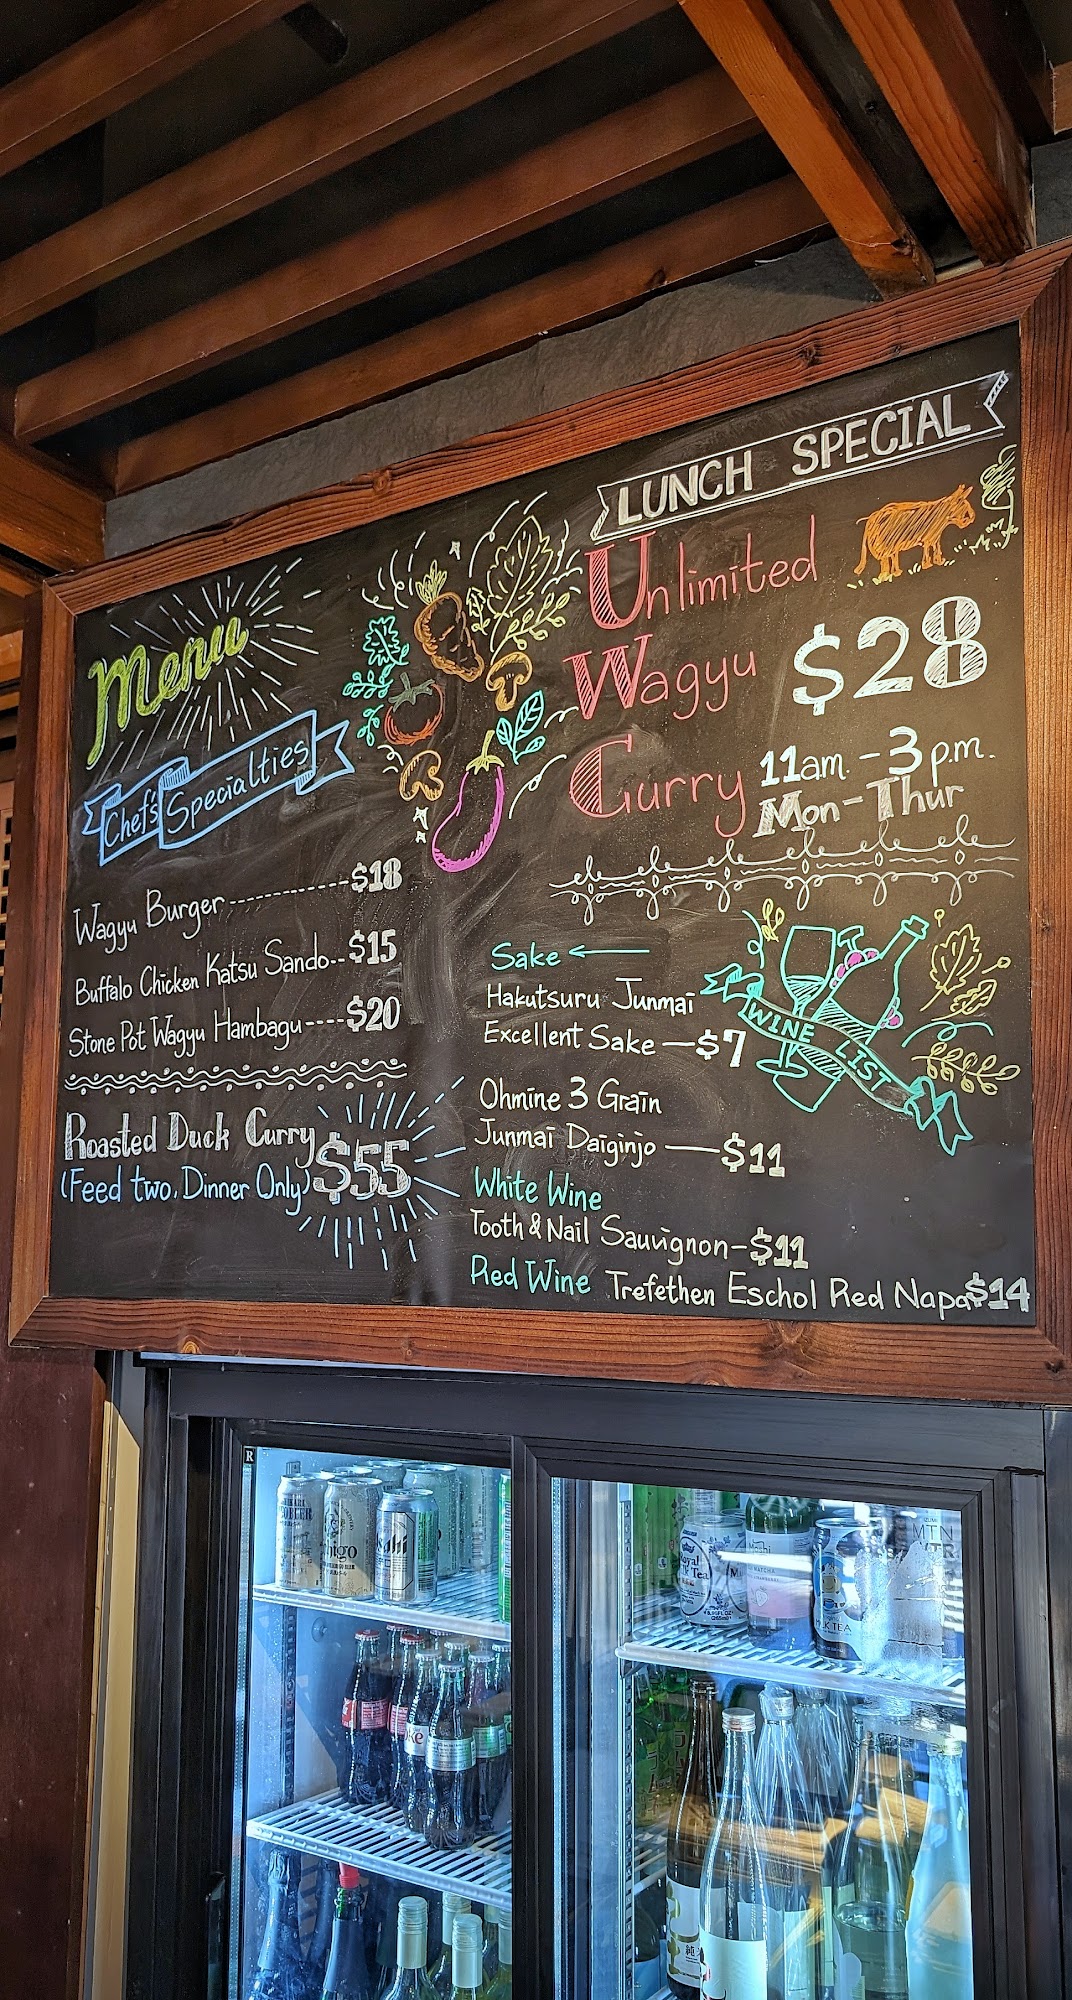 Menu
Chef's Specialties
Wagyu Burger ---------- $18
Buffalo Chicken Katsu Sando-- $15
Stone Pot Wagyu Hambagu---- $20
Roasted Duck Curry
(Feed two, Dinner Only) $55
LUNCH SPECIAL
Unlimited
Wagyu
Curry
$28
11am. - 3p.m.
Mon - Thur
WINE LIST
Sake
Hakutsuru Junmai
Excellent Sake — $7
Ohmine 3 Grain
Junmai Daiginjo — $11
White Wine
Tooth & Nail Sauvignon - $11
Red Wine Trefethen Eschol Red Napa $14
R
Asahi
Royal
Tea
MATCHA
MILK TEA
MTN